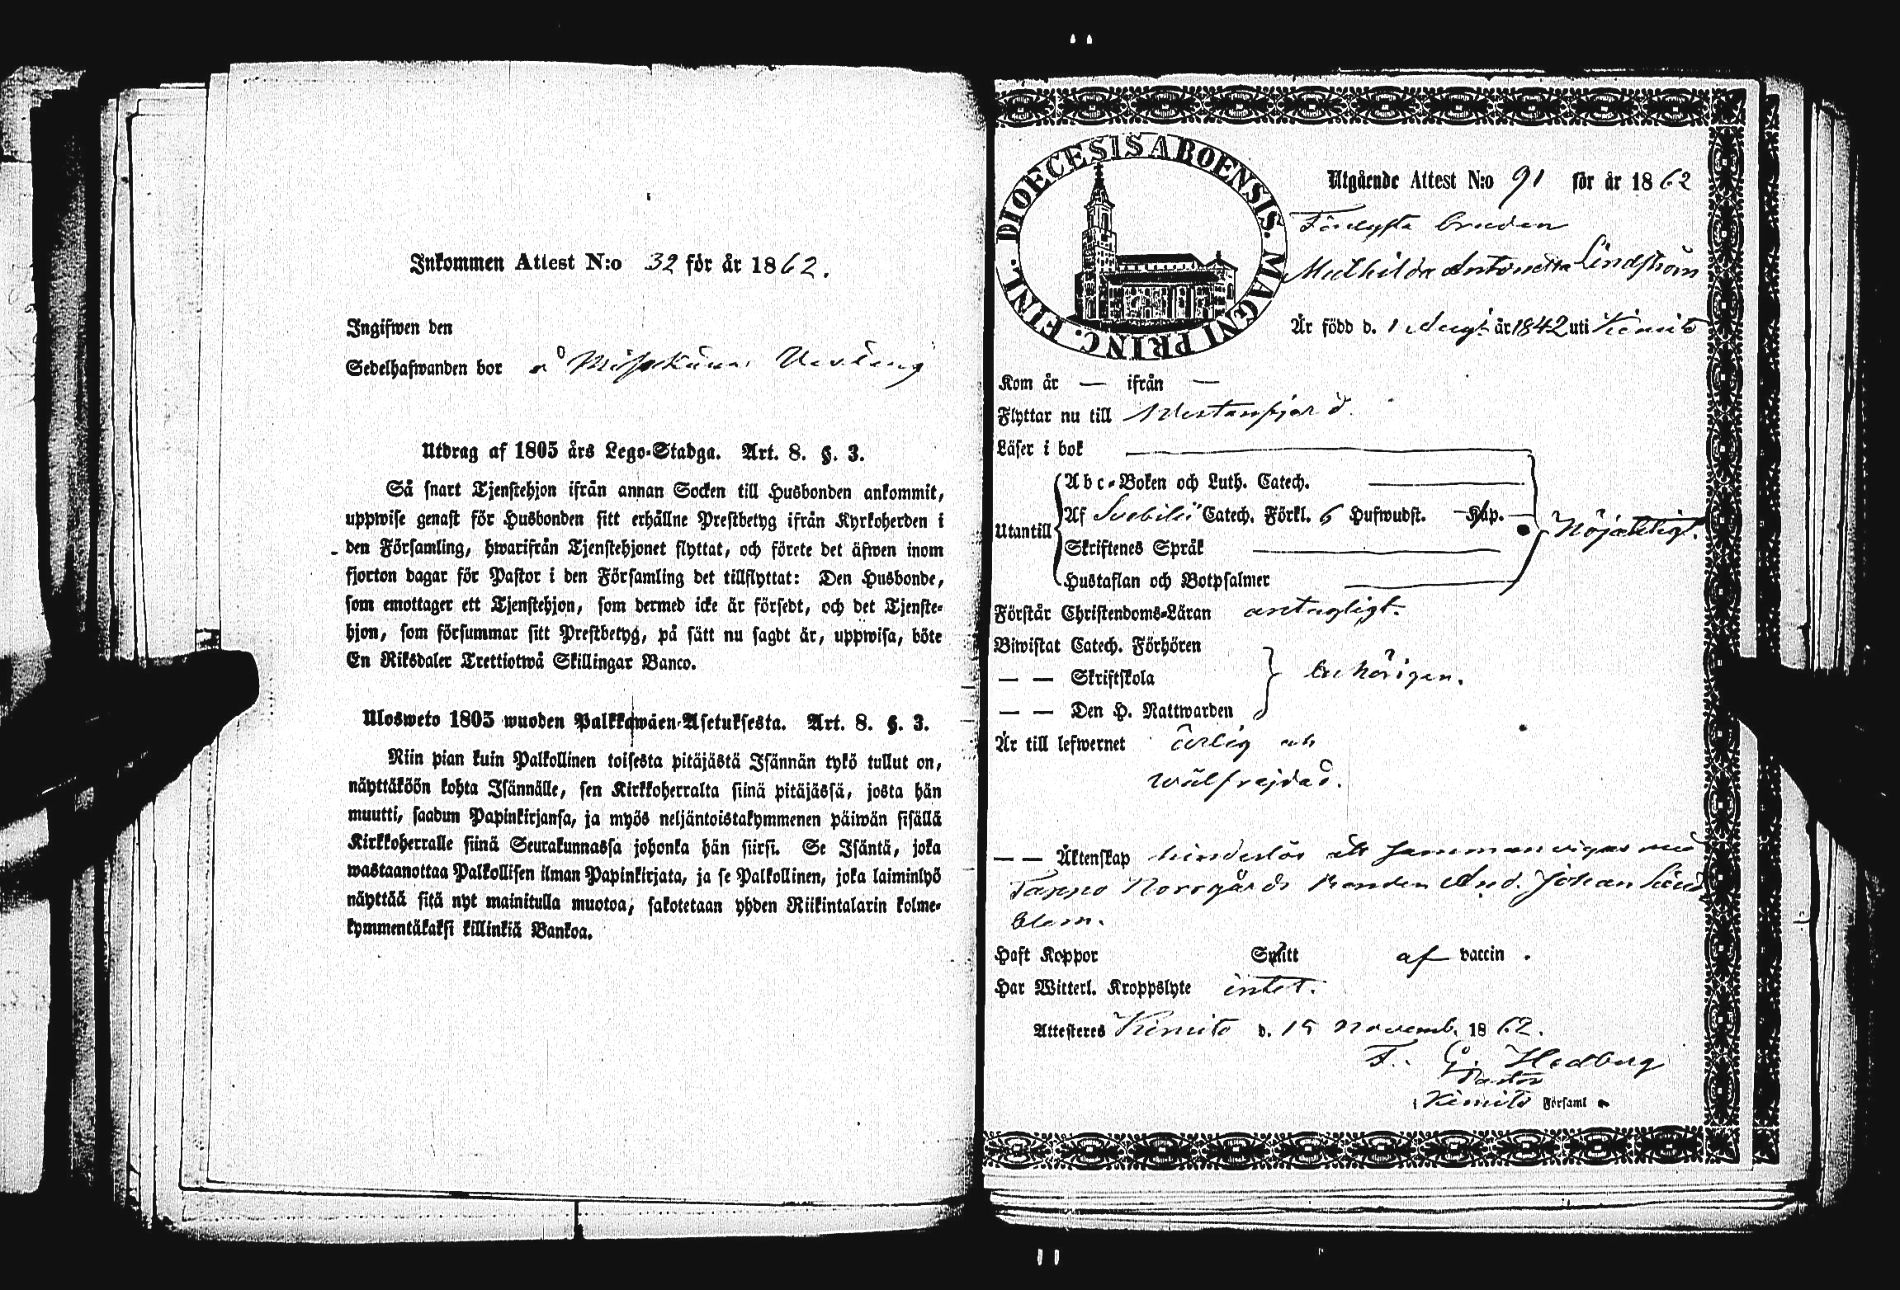 Inkommen Attest N:o 32 för år 1862.
Ingifwen den
Sedelhafwanden bor å
Utdrag af 1805 års Lego-Stadga. Art. 8. §. 3.
Så snart Tjenstehjon ifrån annan Socken till Husbonden ankommit,
uppwise genast för Husbonden sitt erhållne Prestbetyg ifrån Kyrkoherden i
den Församling, hwarifrån Tjenstehjonet flyttat, och förete det äfwen inom
fjorton dagar för Pastor i den Församling det tillflyttat: Den Husbonde,
som emottager ett Tjenstehjon, som dermed icke är försedt, och det Tjenste-
hjon, som försummar sitt Prestbetyg, på sätt nu sagdt är, uppwisa, böte
En Riksdaler Trettiotwå Skillingar Banco.
Ulosweto 1805 wuoden Palkkawäen-Asetuksesta. Art. 8. §. 3.
Niin pian kuin Palkollinen toisesta pitäjästä Isännän tykö tullut on,
näyttäköön kohta Isännälle, sen Kirkkoherralta siinä pitäjässä, josta hän
muutti, saadun Papinkirjansa, ja myös neljäntoistakymmenen päiwän sisällä
Kirkkoherralle siinä Seurakunnassa johonka hän siirsi. Se Isäntä, joka
wastaanottaa Palkollisen ilman Papinkirjata, ja se Palkollinen, joka laiminlyö
näyttää sitä nyt mainitulla muotoa, sakotetaan yhden Riikintalarin kolme-
kymmentäkaksi killinkiä Bankoa.
DIOECESIS ABOENSIS. MAGNI PRINC. FINL.
Utgående Attest N:o 91 för år 1862
bruden
Mathilda Antonetta Lindström
Är född d. 1 Aug. år 1842 uti Kimito
Kom år — ifrån —
Flyttar nu till Westanfjärd.
Läser i bok
Utantill
Abc-Boken och Luth. Catech.
Af Svebilii Catech. Förkl. 6 Hufwudst. Kap.
Skriftenes Språk
Hustaflan och Botpsalmer
Nöjaktligt.
Förstår Christendoms-Läran antagligt.
Biwistat Catech. Förhören
— — Skriftskola
— — Den H. Nattwarden
behörigen.
Är till lefwernet ärlig och
wälfrejdad.
— — Äktenskap hinderlös att sammanvigas med
Norrgårds Bonden And. Johan Lind
blom.
Haft Koppor Smitt af vaccin.
Har Witterl. Kroppslyte intet.
Attesteras Kimito d. 15 Novemb. 1862.
F. G. Hedberg
Pastor
i Kimito Församl.